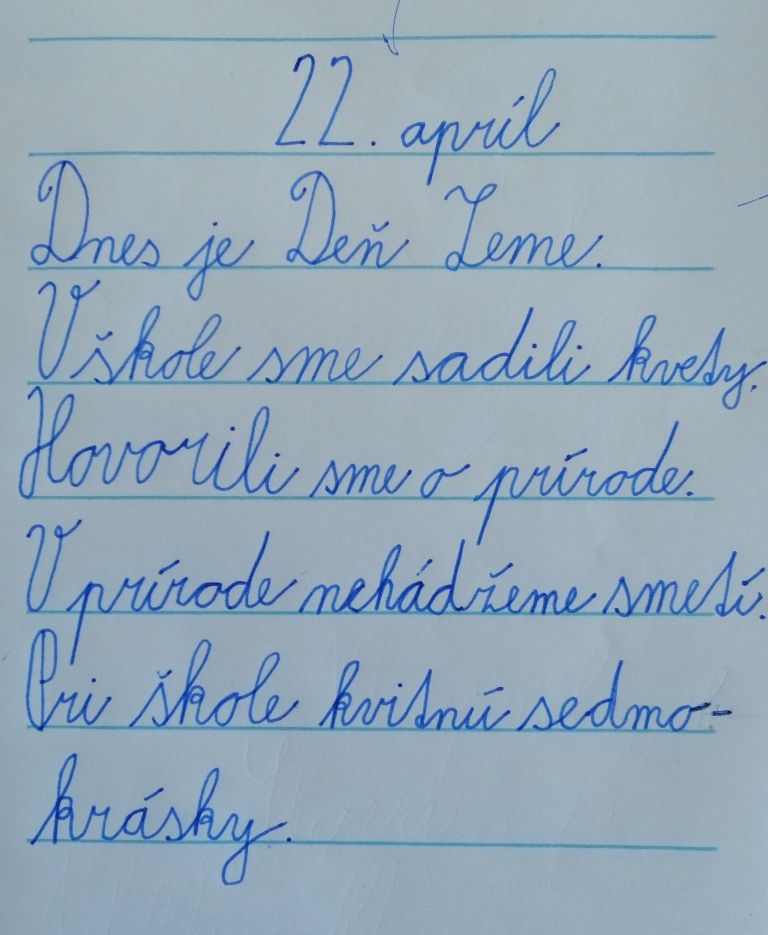 22. apríl
Dnes je Deň Zeme.
V škole sme sadili kvety.
Hovorili sme o prírode.
V prírode nehádžeme smetí.
Pri škole kvitnú sedmo-
krásky.